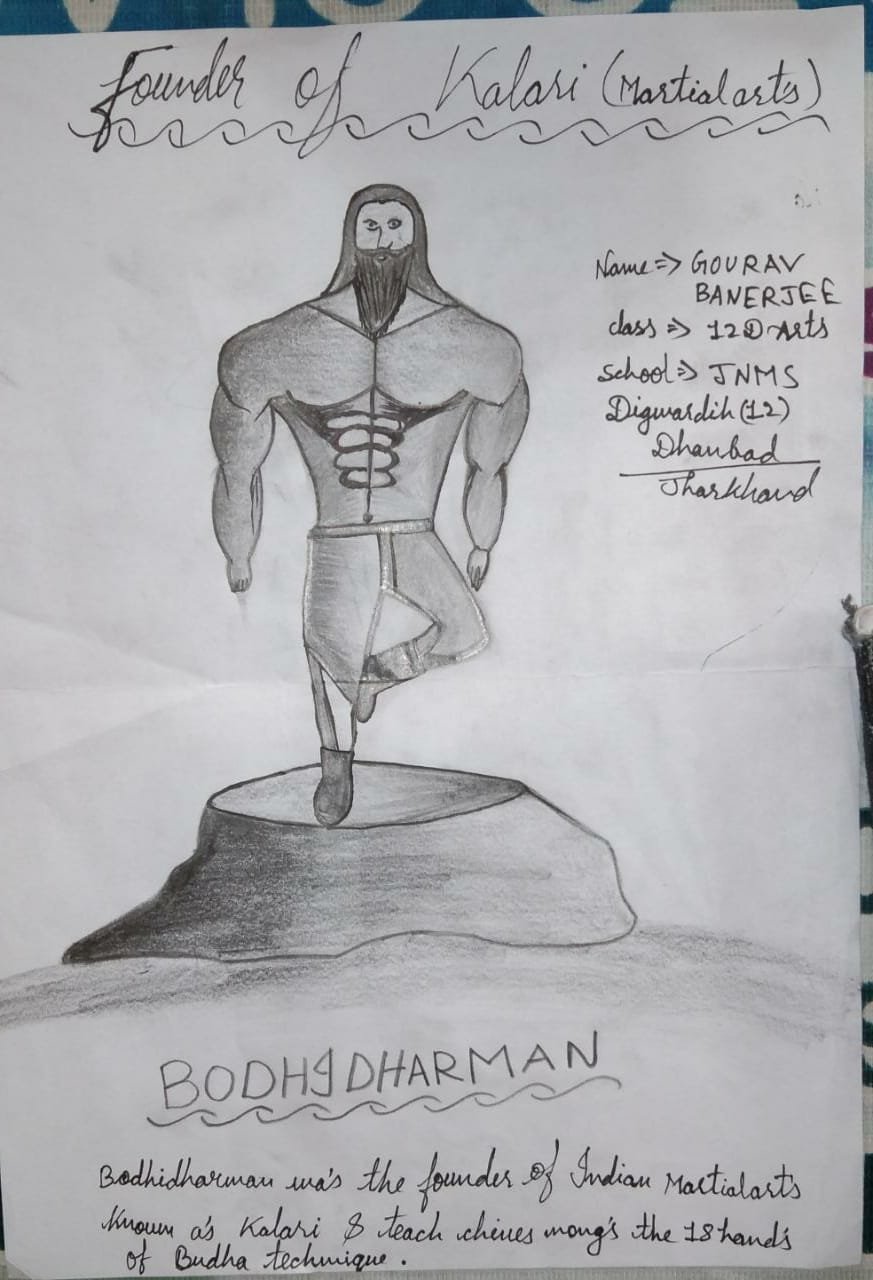 Founder of Kalari (Martial arts)
Name => GOURAV
BANERJEE
class => 12 D Arts
School => JNMS
Digwardih (12)
Dhanbad
Jharkhand
BODHIDHARMAN
Bodhidharman wa's the founder of Indian Martial arts
Known a's Kalari & teach chines mong's the 18 hand's
of Budha technique .